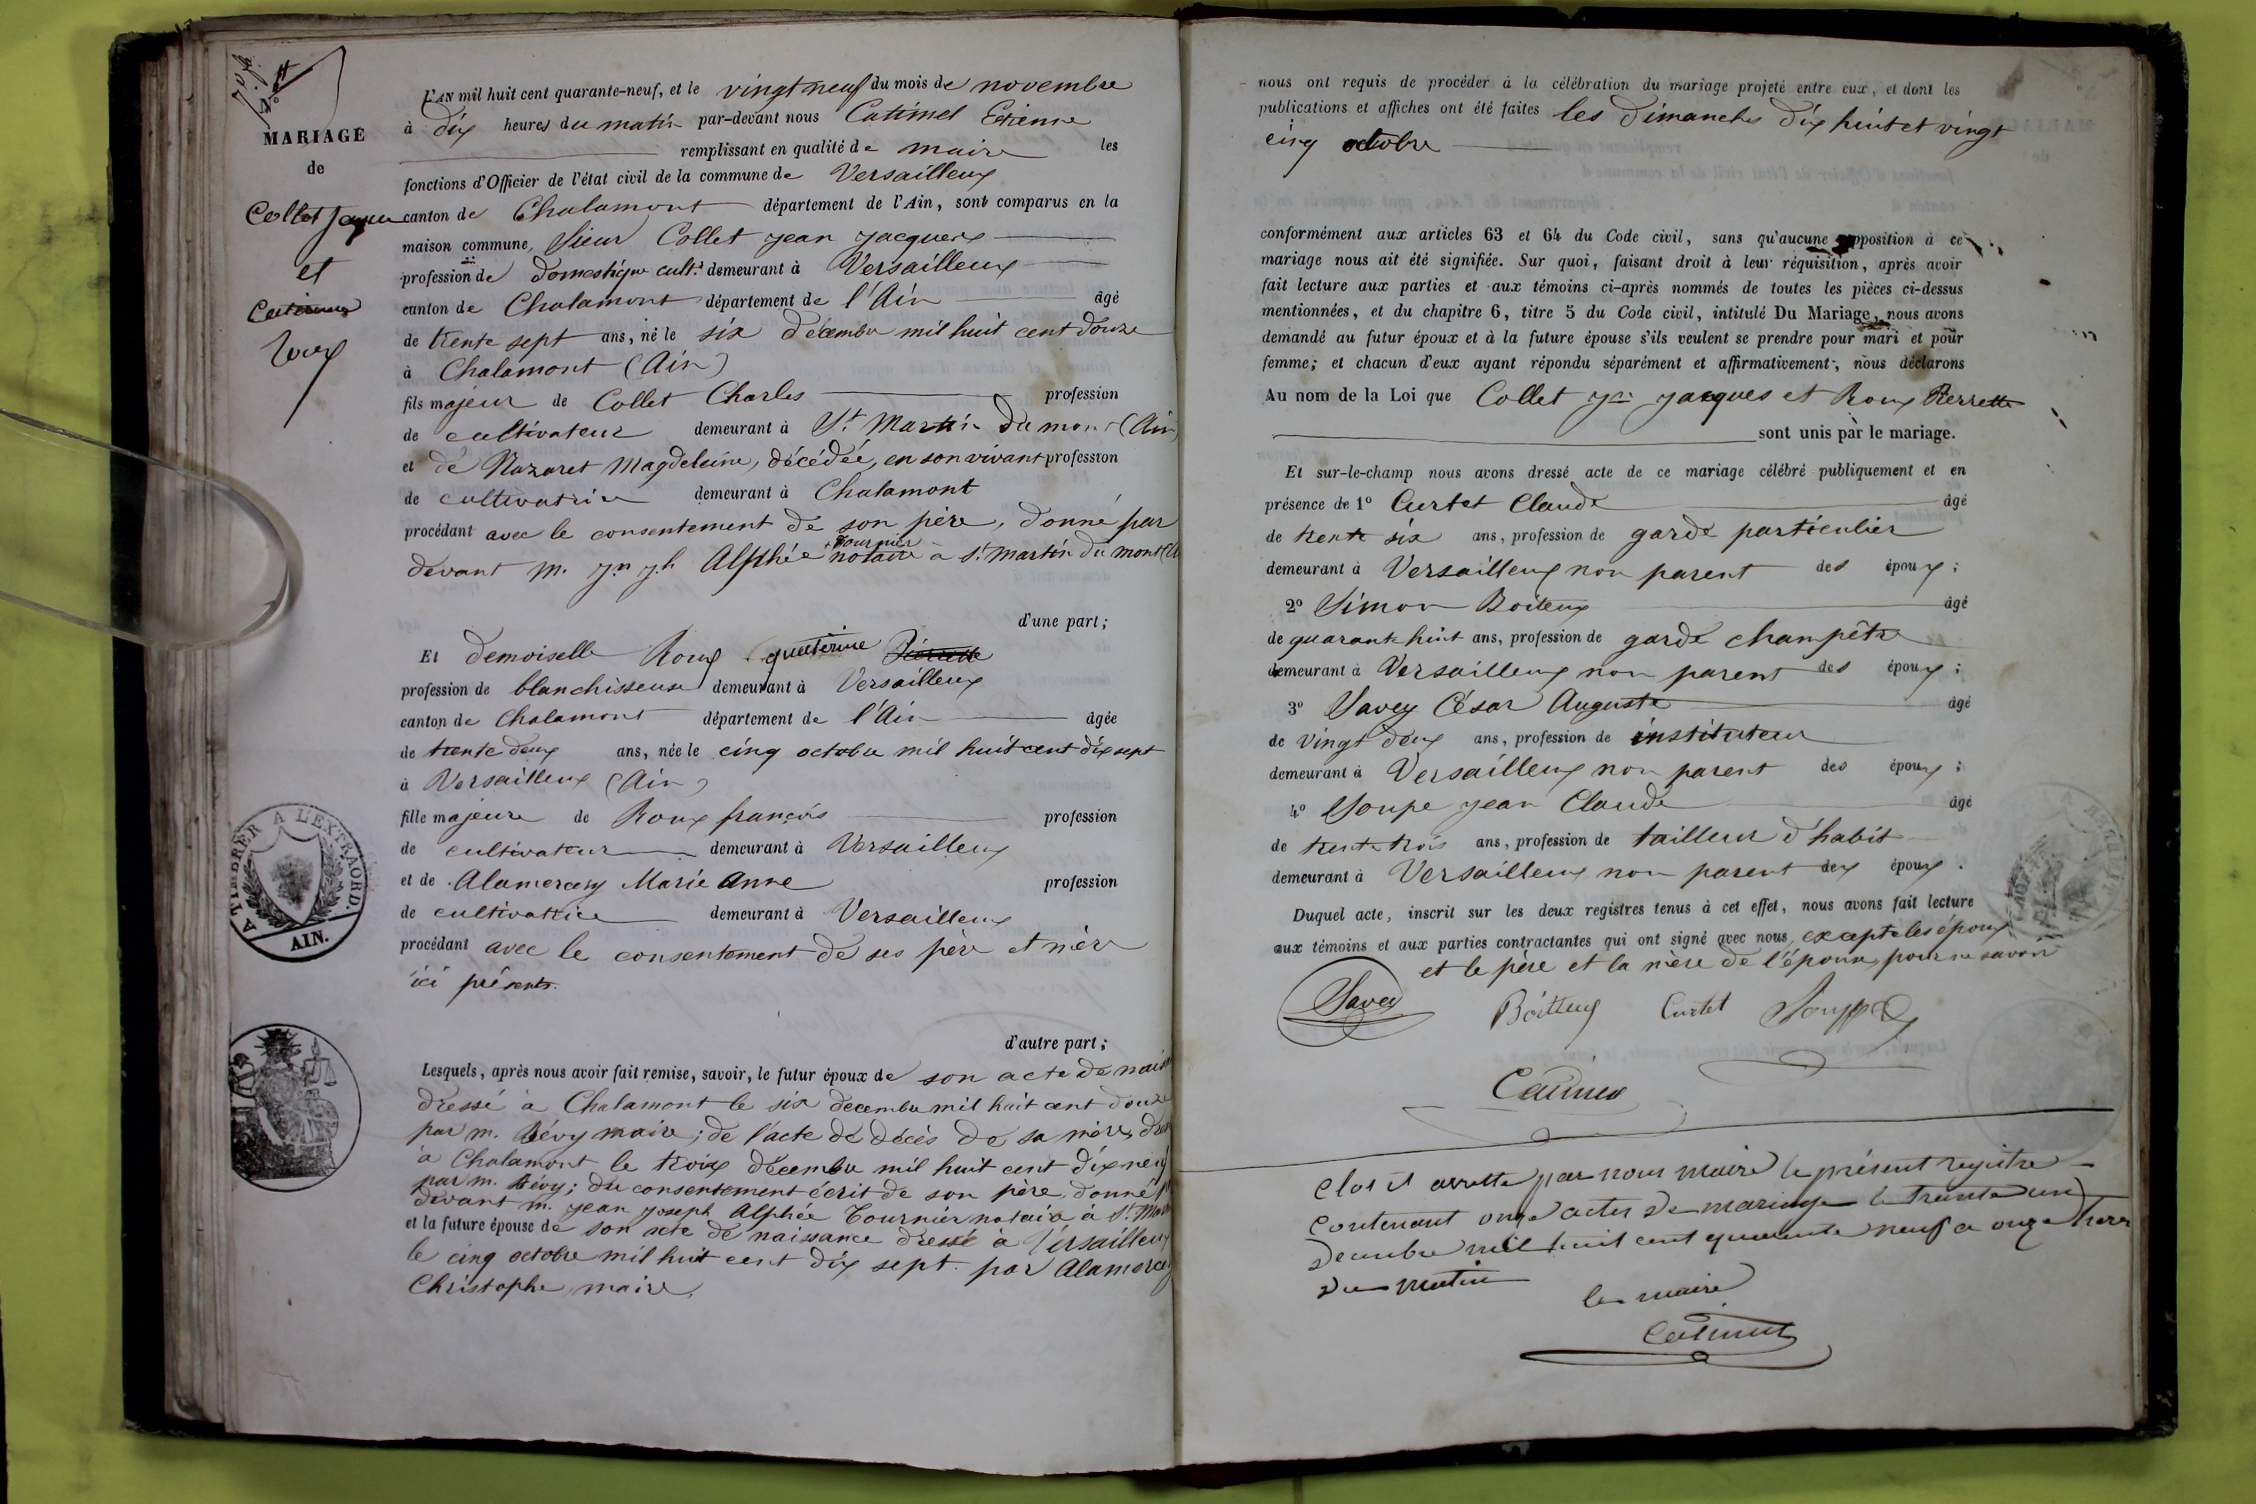 MARIAGE
de
Collet Jaque
et
Roux
L'AN mil huit cent quarante-neuf, et le vingt neuf du mois de novembre
à dix heures du matin par-devant nous Catimel Etienne
remplissant en qualité de maire les
fonctions d'Officier de l'état civil de la commune de Versailleux
canton de Chalamont département de l'Ain, sont comparus en la
maison commune, Sieur Collet jean jacques
profession de domestique cult.r demeurant à Versailleux
canton de Chalamont département de l'Ain âgé
de trente sept ans, né le six décembre mil huit cent douze
à Chalamont (Ain)
fils majeur de Collet Charles profession
de cultivateur demeurant à St Martin du mont (Ain)
et de Nazaret Magdeleine, décédée, en son vivant profession
de cultivatrice demeurant à Chalamont
procédant avec le consentement de son père, donné par
devant m. jn jh Alphée Tournier notaire à St martin du mont (A
d'une part;
Et demoiselle Roux Pierrette
profession de blanchisseuse demeurant à Versailleux
canton de Chalamont département de l'Ain âgée
de trente deux ans, née le cinq octobre mil huit cent dix sept
à Versailleux (Ain)
fille majeure de Roux françois profession
de cultivateur demeurant à Versailleux
et de Alamercery Marie Anne profession
de cultivatrice demeurant à Versailleux
procédant avec le consentement de ses père et mère
ici présents.
d'autre part;
Lesquels, après nous avoir fait remise, savoir, le futur époux de son acte de nais
dressé à Chalamont le six decembre mil huit cent douze
par m. Révy maire; de l'acte de décès de sa mère, dres
à Chalamont le troix décembre mil huit cent dixneuf
par m. Révy; du consentement écrit de son père, donné p
devant m. jean joseph Alphée Tournier notaire à St. Mar
et la future épouse de son acte de naissance dressé à Versailleux
le cinq octobre mil huit cent dix sept. par Alamerce
Christophe maire.
A TIMBRER A L'EXTRAORD.
AIN.
nous ont requis de procéder à la célébration du mariage projeté entre eux, et dont les
publications et affiches ont été faites les dimanches dix huit et vingt
cinq octobre
conformément aux articles 63 et 64 du Code civil, sans qu'aucune opposition à ce
mariage nous ait été signifiée. Sur quoi, faisant droit à leur réquisition, après avoir
fait lecture aux parties et aux témoins ci-après nommés de toutes les pièces ci-dessus
mentionnées, et du chapitre 6, titre 5 du Code civil, intitulé Du Mariage, nous avons
demandé au futur époux et à la future épouse s'ils veulent se prendre pour mari et pour
femme; et chacun d'eux ayant répondu séparément et affirmativement, nous déclarons
Au nom de la Loi que Collet jn jacques et Roux Pierrette
sont unis par le mariage.
Et sur-le-champ nous avons dressé acte de ce mariage célébré publiquement et en
présence de 1º Curtet Claude âgé
de trente six ans, profession de garde particulier
demeurant à Versailleux non parent des époux;
2º Simon Boiteux âgé
de quarante huit ans, profession de garde champêtre
demeurant à Versailleux non parent des époux;
3º Savey César Auguste âgé
de vingt deux ans, profession de instituteur
demeurant à Versailleux non parent des époux;
4º Soupe jean Claude âgé
de trente trois ans, profession de tailleur d'habit
demeurant à Versailleux non parent des époux.
Duquel acte, inscrit sur les deux registres tenus à cet effet, nous avons fait lecture
aux témoins et aux parties contractantes qui ont signé avec nous, excepté les époux
et le père et la mère de l'épouse, pour ne savoir
Savey Boitteux Curtet Souppe
Catimel
Clos et arretté par nous maire le présent registre
Contenant onze actes de mariage le trente un
Decembre mil huit cent quarante neuf a onze heure
du matin
le maire
Catimel